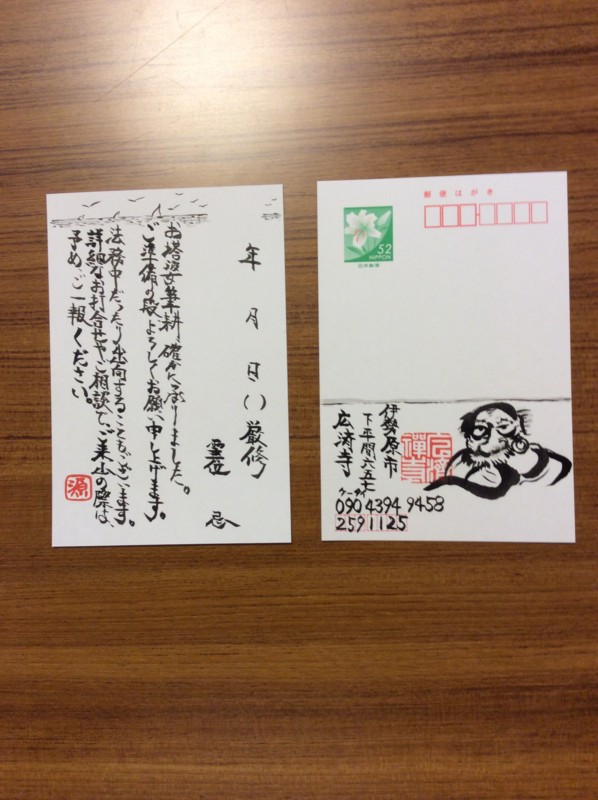 年 月 日( )厳修
霊位 忌
お塔婆筆耕、確かに承りました。
ご準備の段、よろしくお願い申し上げます。
法務中だったり出向することもございます。
詳細なお打合せやご相談で、ご来山の際は、
予め、ご一報ください。
源
郵便はがき
52
NIPPON
日本郵便
伊勢原市
下平間六五七
広済寺
ケータイ
090 4394 9458
259 1125